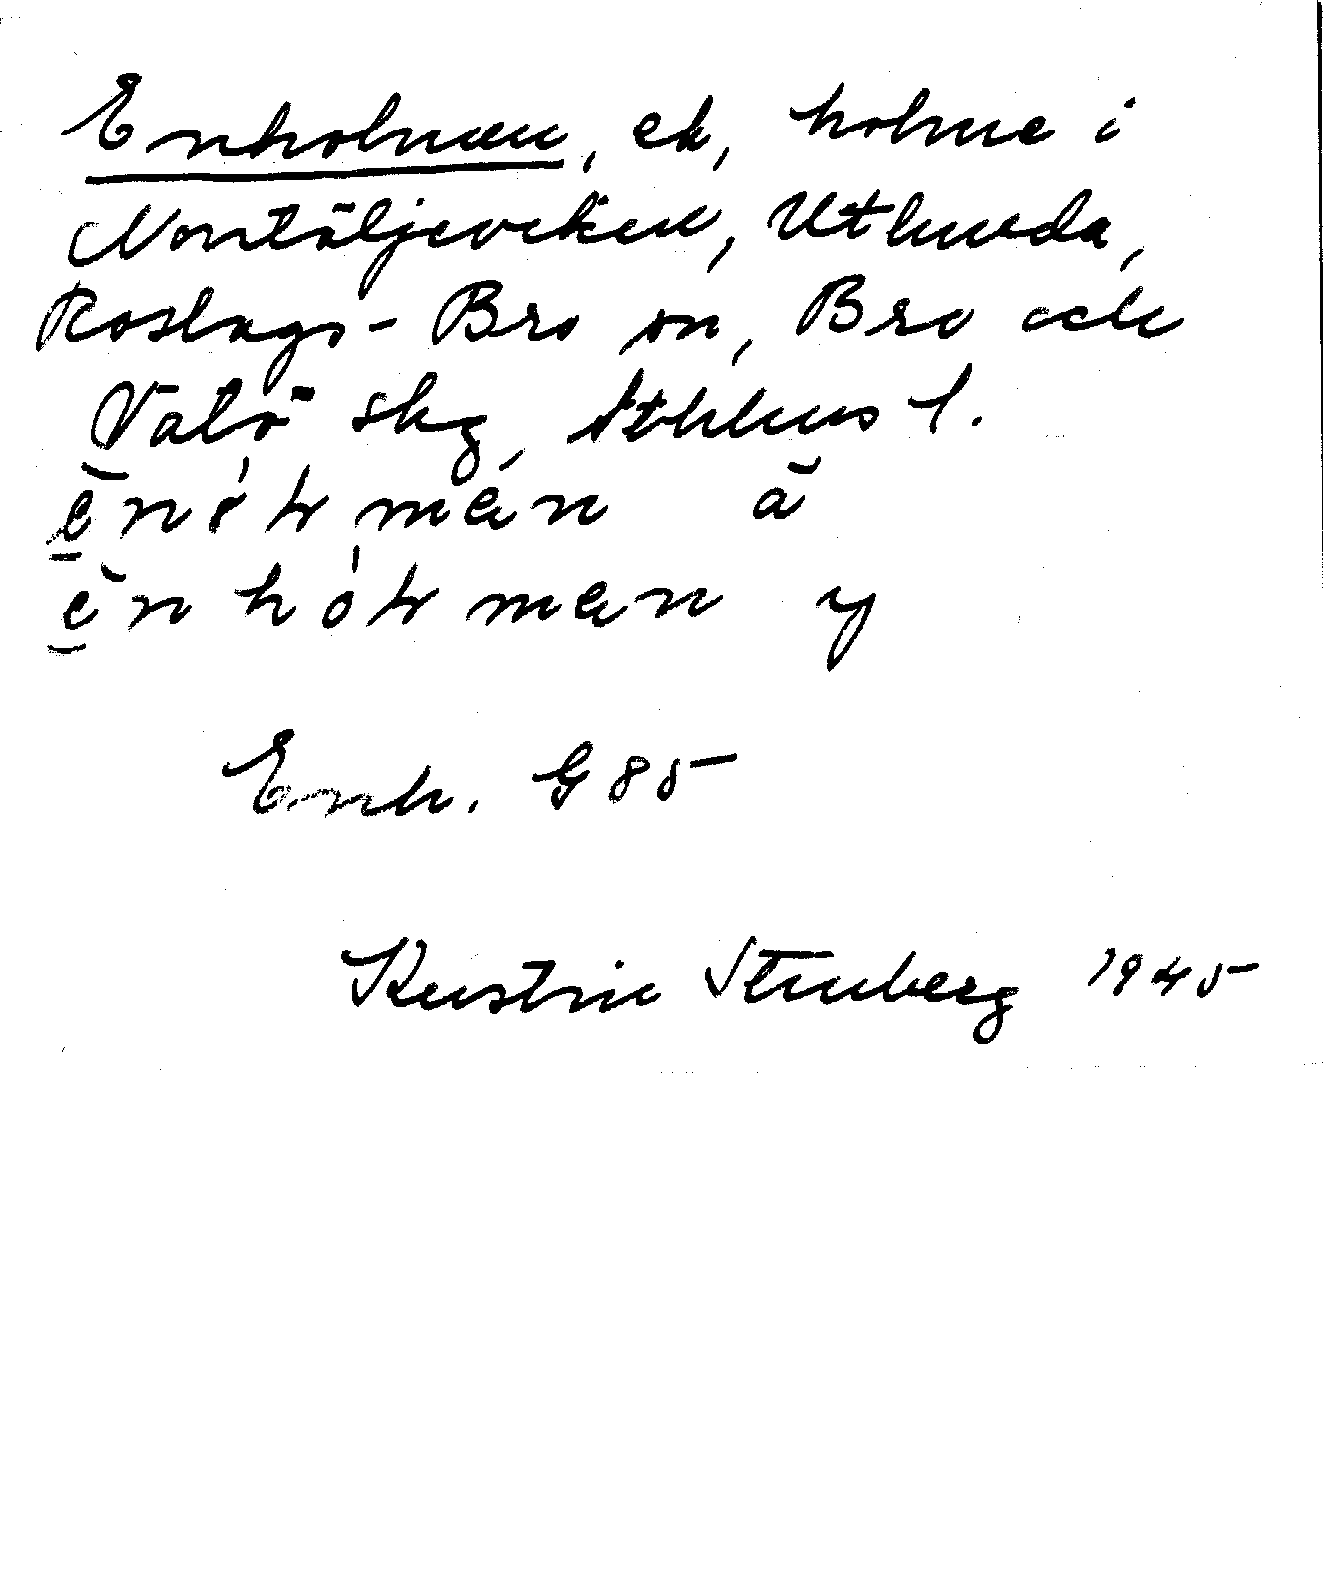 Enholmen, ek, holme i
Norrtäljeviken, Utlunda,
Roslags-Bro sn, Bro och
Vätö skg, Sthlms l.
Enh. G 85
Kerstin Stenberg 1945